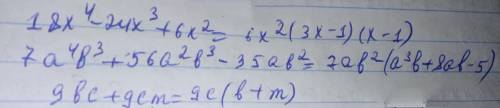 18x⁴-24x³+6x²=6x²(3x-1)(x-1)
7a⁴b³+56a²b³-35ab²=7ab²(a³b+8ab-5)
9bc+9cm=9c(b+m)